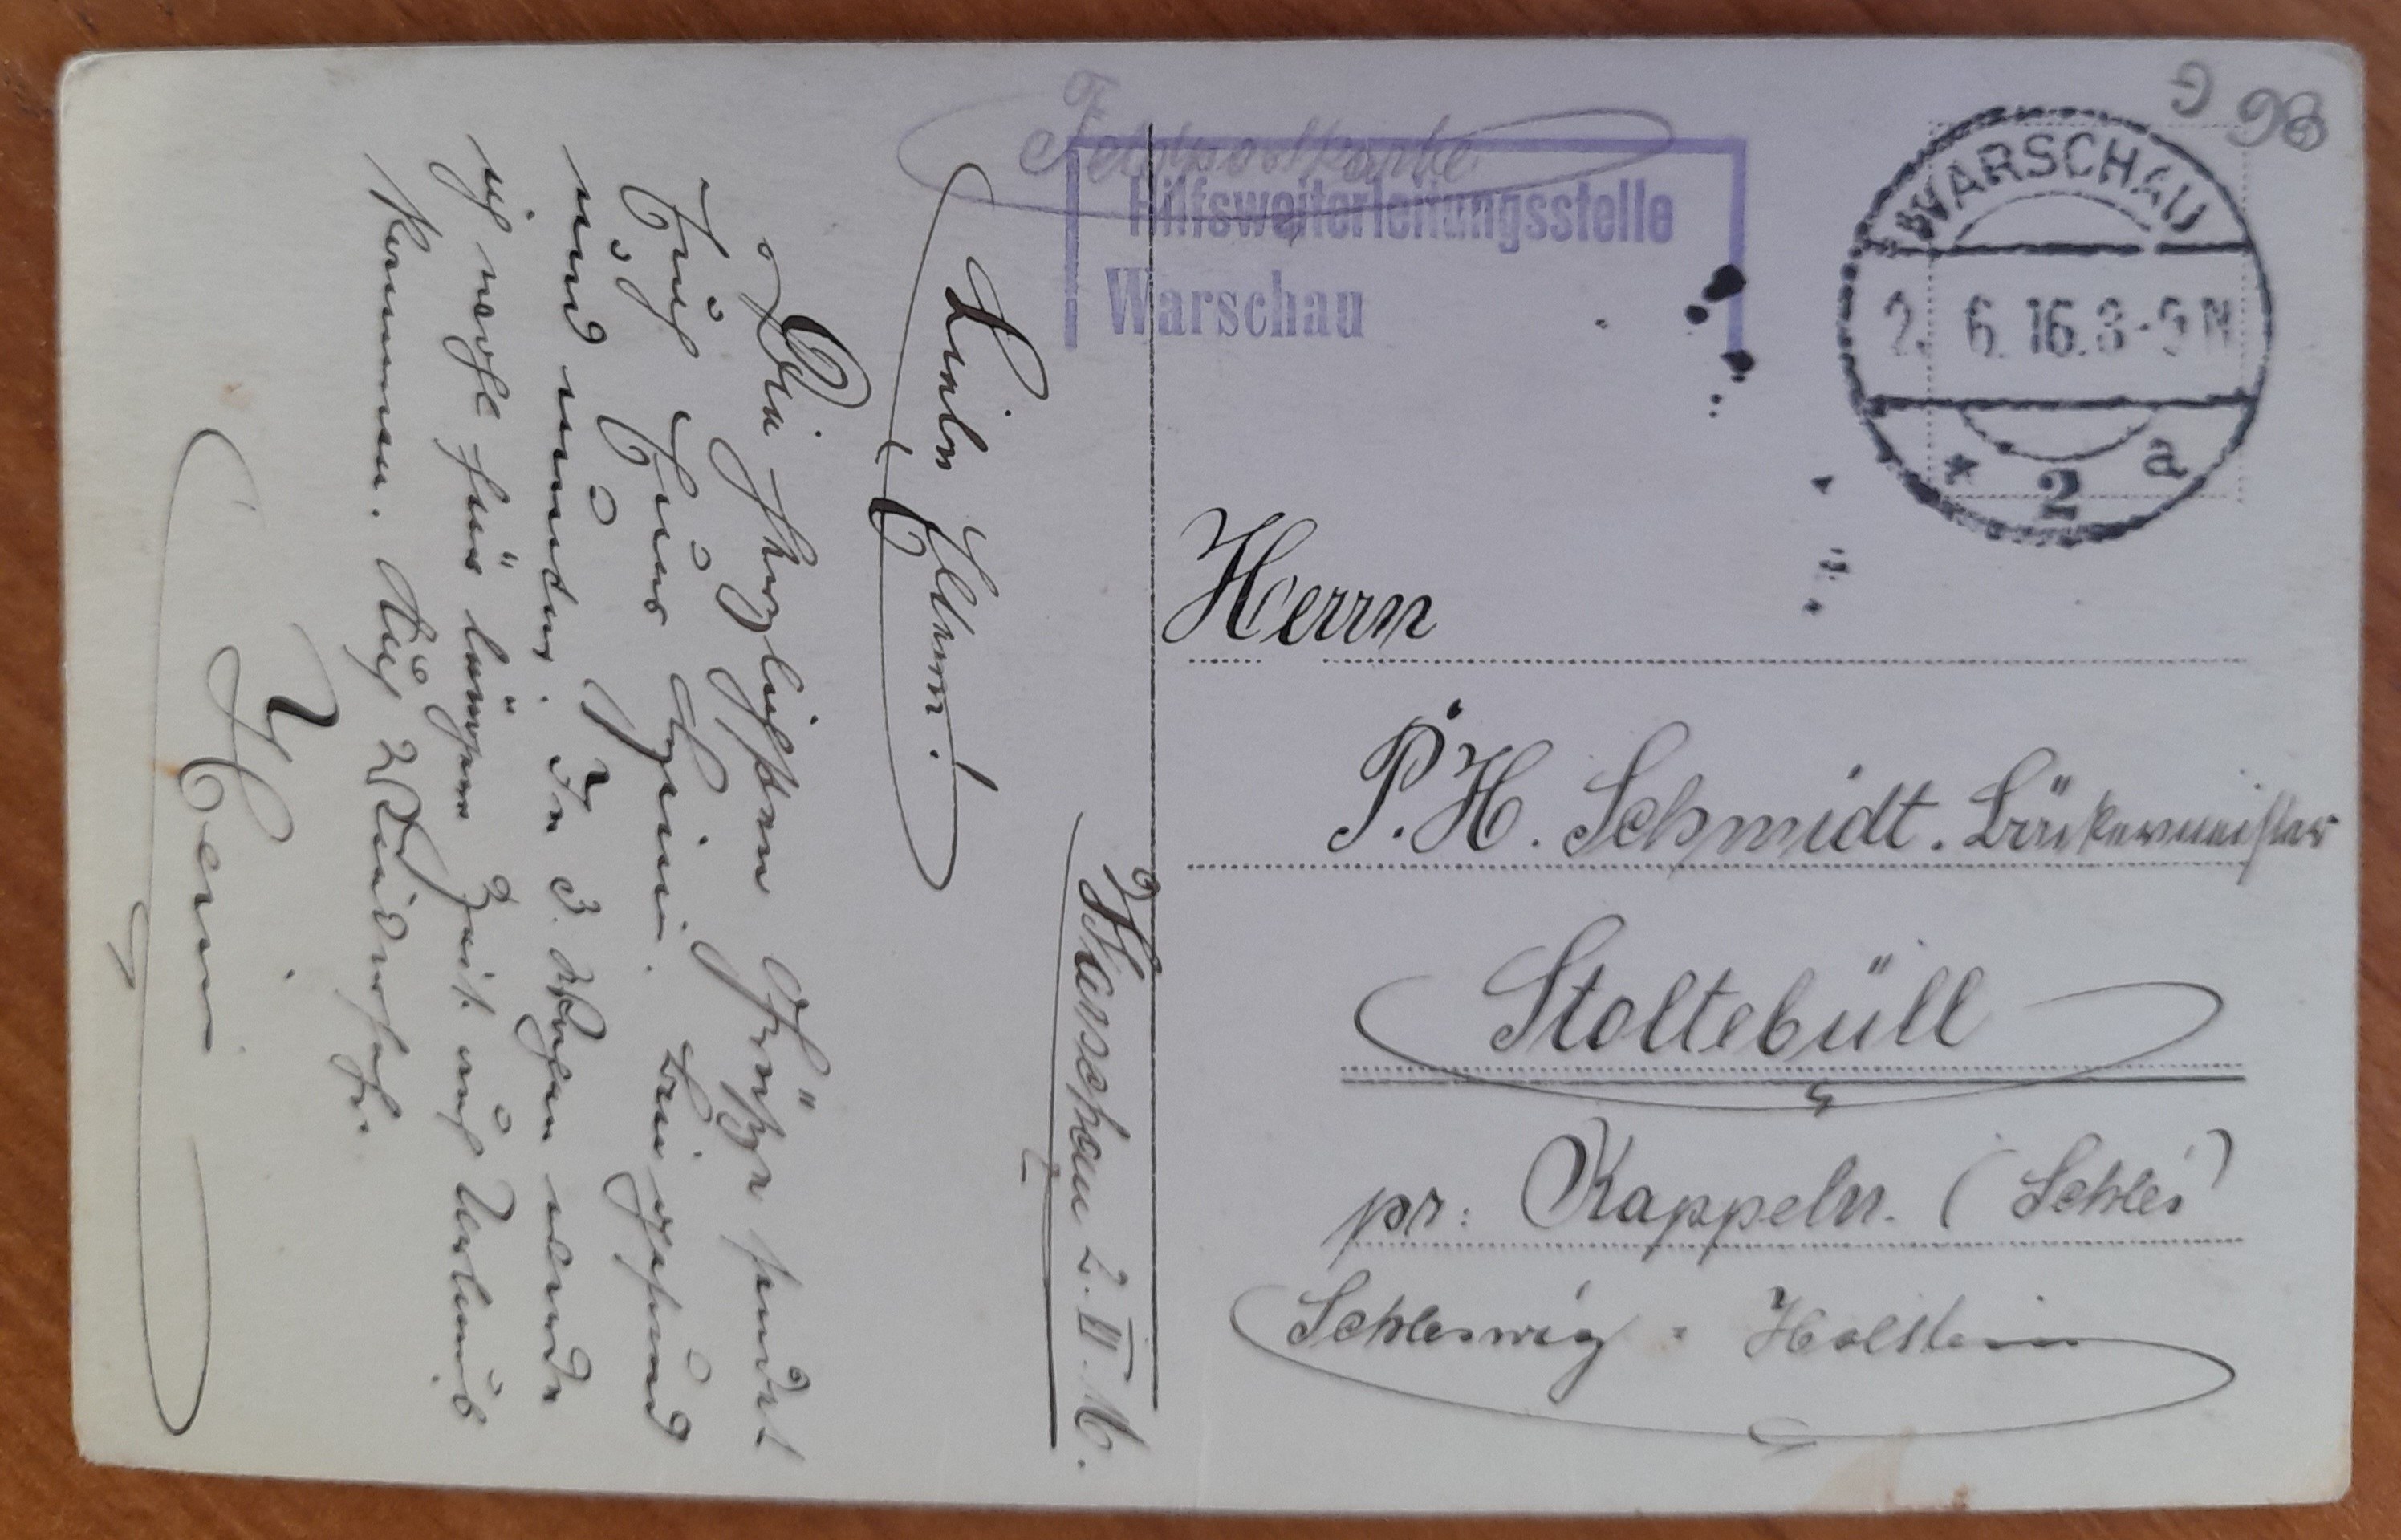 Feldpostkarte
Hilfsweiterleitungsstelle
Warschau
WARSCHAU
2. 6. 16. 8-9 N
* 2 a
98
Herrn
P. H. Schmidt. Bäckermeister
Stoltebüll
pr: Kappeln. (Schlei)
Schleswig = Holstein
Warschau 2. VI. 16.
Liebe Eltern!
Die herzlichsten Grüße sendet
Euch Euer Heini. Bin gesund
und munter. In 3. Wochen werde
ich wohl für längere Zeit auf Urlaub
kommen. Auf Wiedersehn.
Heini